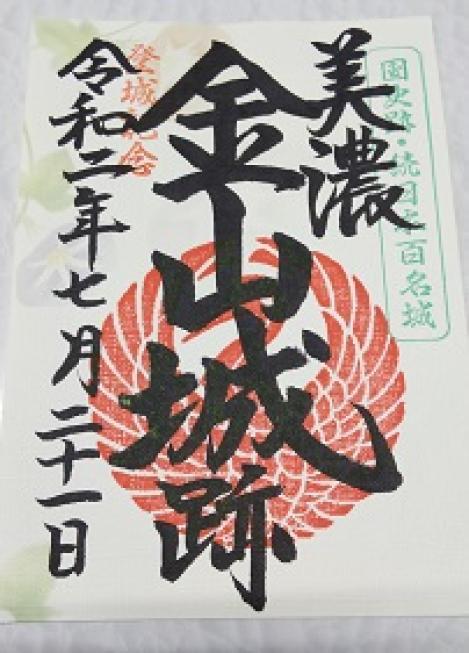 国史跡・続日本百名城
美濃
金山城跡
登城記念
令和二年七月二十一日